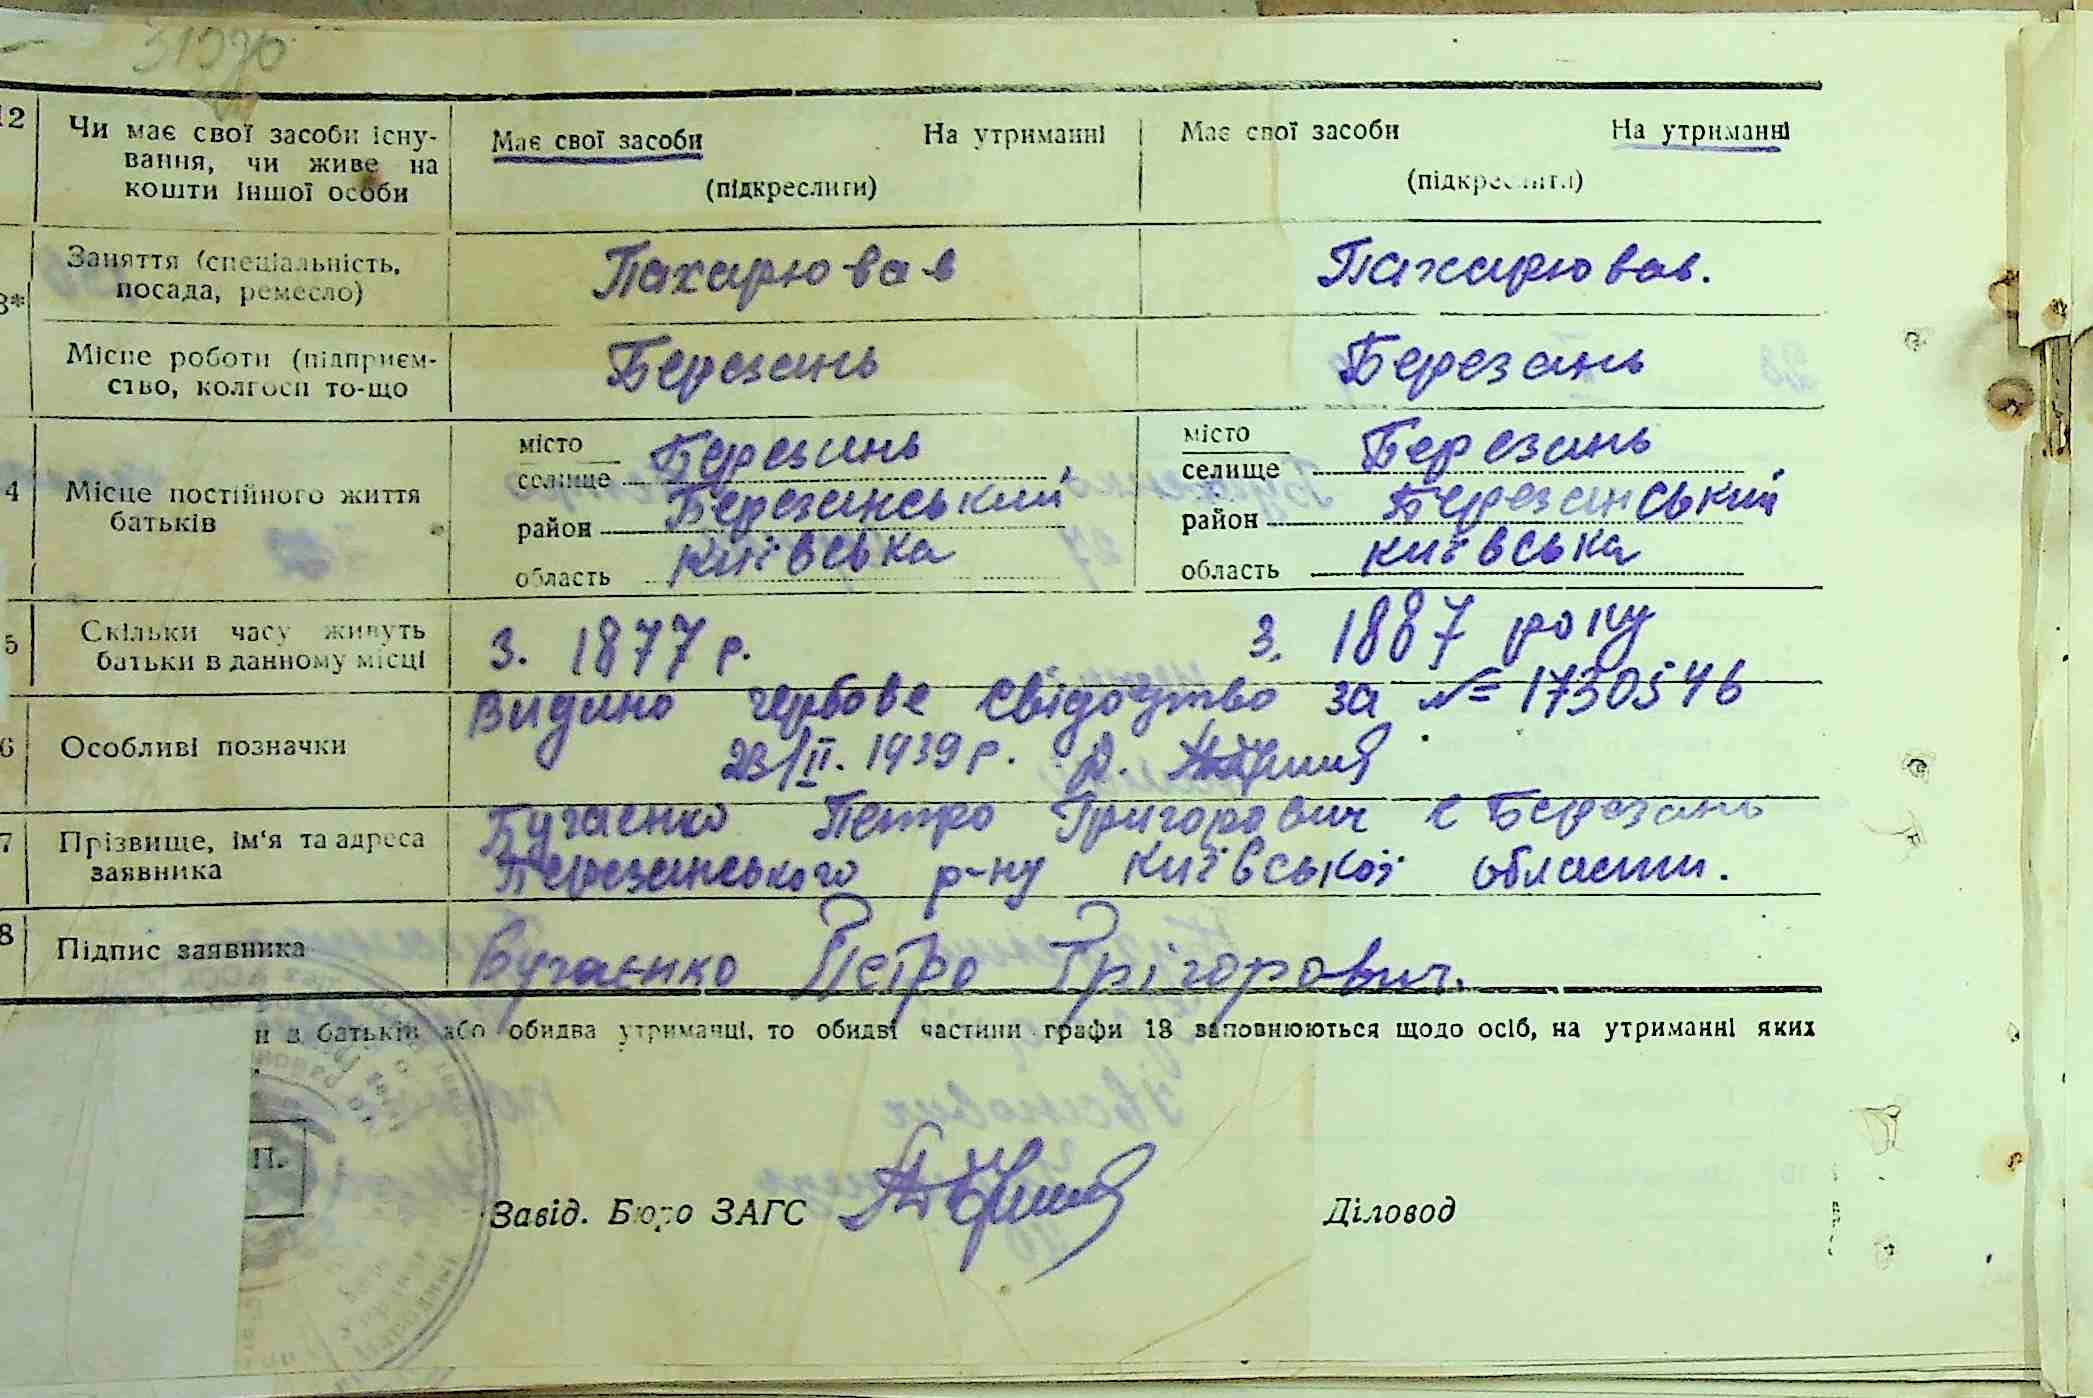 31570
12 Чи має свої засоби існу- Має свої засоби На утриманні Має свої засоби На утриманні
вання, чи живе на
кошти іншої особи (підкреслити) (підкреслити)
Заняття (спеціальність, Пахарював Пахарював.
3* посада, ремесло)
Місце роботи (підприєм- Березань Березань
ство, колгосп то-що
місто місто
селище Березань селище Березань
4 Місце постійного життя район Березанський район Березанський
батьків
область київська область київська
5 Скільки часу живуть З. 1877 р. З. 1887 року
батьки в данному місці
Видано гербове свідоцтво за № 1730546
6 Особливі позначки 23/II. 1939 р.
7 Прізвище, ім'я та адреса Бугаєнко Петро Григорович с Березань
заявника Березанського р-ну київської области.
8 Підпис заявника Бугаєнко Петро Грігорович.
н з батьків або обидва утриманці, то обидві частини графи 13 заповнюються щодо осіб, на утриманні яких
П.
Завід. Бюро ЗАГС Діловод